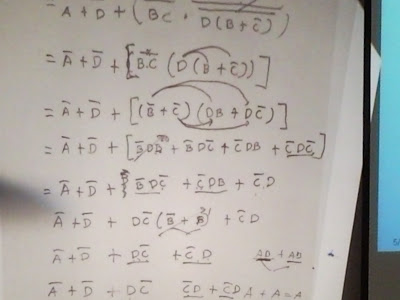 Ā + D̄ + (B̄C̄ · D(B + C̄))
= Ā + D̄ + [B̄.C̄ (D(B + C̄))]
= Ā + D̄ + [(B̄ + C̄)(DB + DC̄)]
= Ā + D̄ + [B̄DB + B̄DC̄ + C̄DB + C̄DC̄]
= Ā + D̄ + B̄DC̄ + C̄DB + C̄D
Ā + D̄ + DC̄(B̄ + B) + C̄D
Ā + D̄ + DC̄ + C̄D AD + AD
Ā + D̄ + DC̄ C̄D + C̄D A + A = A